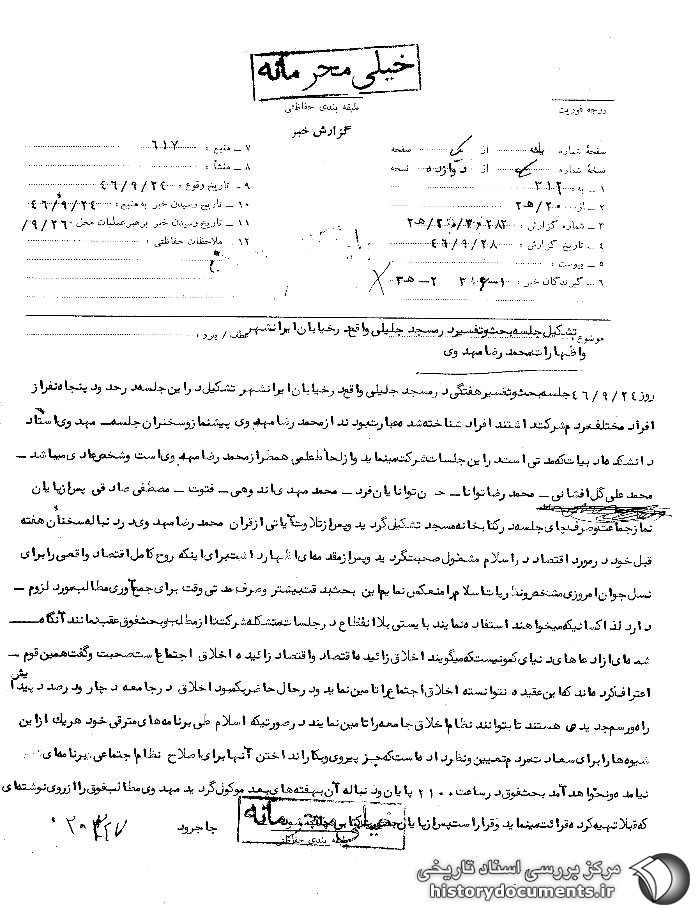 خیلی محرمانه
طبقه بندی حفاظتی
درجه فوریت
گزارش خبر
صفحهٔ شماره یک از یک صفحه
نسخهٔ شماره از دوازده نسخه
۱ ـ به : ۳۱۲
۲ ـ از : ۲۰/هـ۲
۳ ـ شماره گزارش :
۴ ـ تاریخ گزارش : ۴۶/۹/۲۸
۵ ـ پیوست :
۶ ـ گیرندگان خبر :
۷ ـ منبع : ۶۱۷
۸ ـ منشأ :
۹ ـ تاریخ وقوع : ۴۶/۹/۲۴
۱۰ ـ تاریخ رسیدن خبر به منبع : ۴۶/۹/۲۴
۱۱ ـ تاریخ رسیدن خبر برهبر عملیات محل : ۹/۲۶/
۱۲ ـ ملاحظات حفاظتی :
موضوع : تشکیل جلسه بحث و تفسیر در مسجد جلیلی واقع در خیابان ایرانشهر
واظهارات محمد رضا مهدوی
عطف / پیرو :
روز ۴۶/۹/۲۴ جلسه بحث و تفسیر هفتگی در مسجد جلیلی واقع در خیابان ایرانشهر تشکیل در این جلسه در حدود پنجاه نفر از
افراد مختلف مردم شرکت داشتند افراد شناخته شده عبارت بودند از محمد رضا مهدوی پیشنماز و سخنران جلسه ـ مهدوی استاد
دانشکده ادبیات که مدتی است در این جلسات شرکت مینماید و از لحاظ علمی همطراز محمد رضا مهدوی است و شخص عادی میباشد ـ
محمد علی گل افشانی ـ محمد رضا توانا ـ حسن توانایان فرد ـ محمد مهدی اندوهی ـ فتوت ـ مصطفی صادقی پس از پایان
نماز جماعت و صرف چای جلسه در کتابخانه مسجد تشکیل گردید و پس از تلاوت آیاتی از قران محمد رضا مهدوی در دنباله سخنان هفته
قبل خود در مورد اقتصاد در اسلام مشغول صحبت گردید و پس از مقدمه ای اظهار داشت برای اینکه روح کامل اقتصاد واقعی را برای
نسل جوان امروزی مشخص و نظریات اسلام را منعکس نمایم این بحث بدقت بیشتر و صرف مدتی وقت برای جمع آوری مطالب مورد لزوم ـ
دارد لذا کسانیکه میخواهند استفاده نمایند بایستی بلا انقطاع در جلسات متشکله شرکت تا از مطالب و بحث فوق عقب نمانند آنگاه ــ
شمه ای از ادعاهای دنیای کمونیست که میگویند اخلاق زائیده اقتصاد و اقتصاد زائیده اخلاق اجتماع است صحبت و گفت همین قوم ـ
اعتراف کرده اند که این عقیده نتوانسته اخلاق اجتماع را تامین نماید و در حال حاضر یکمود اخلاق در جامعه دچار و درصدد پیدایش
راه و رسم جدیدی هستند تا بتوانند نظام اخلاق جامعه را تامین نمایند در صورتیکه اسلام طی برنامه های مترقی خود هر یک از این
شیوه ها را برای سعادت مردم تعیین و نظر داده است که جز پیروی و بکار انداختن آنها برای اصلاح نظام اجتماعی برنامه ای ـ
نیامده و نخواهد آمد بحث فوق در ساعت ۲۱۰۰ پایان و دنباله آن بهفته های بعد موکول گردید مهدوی مطالب فوق را از روی نوشته ای
که قبلا تهیه کرده قرائت مینماید و قرار است پس از پایان
جاجرود
خیلی محرمانه
طبقه بندی حفاظتی
مرکز بررسی اسناد تاریخی
historydocuments.ir